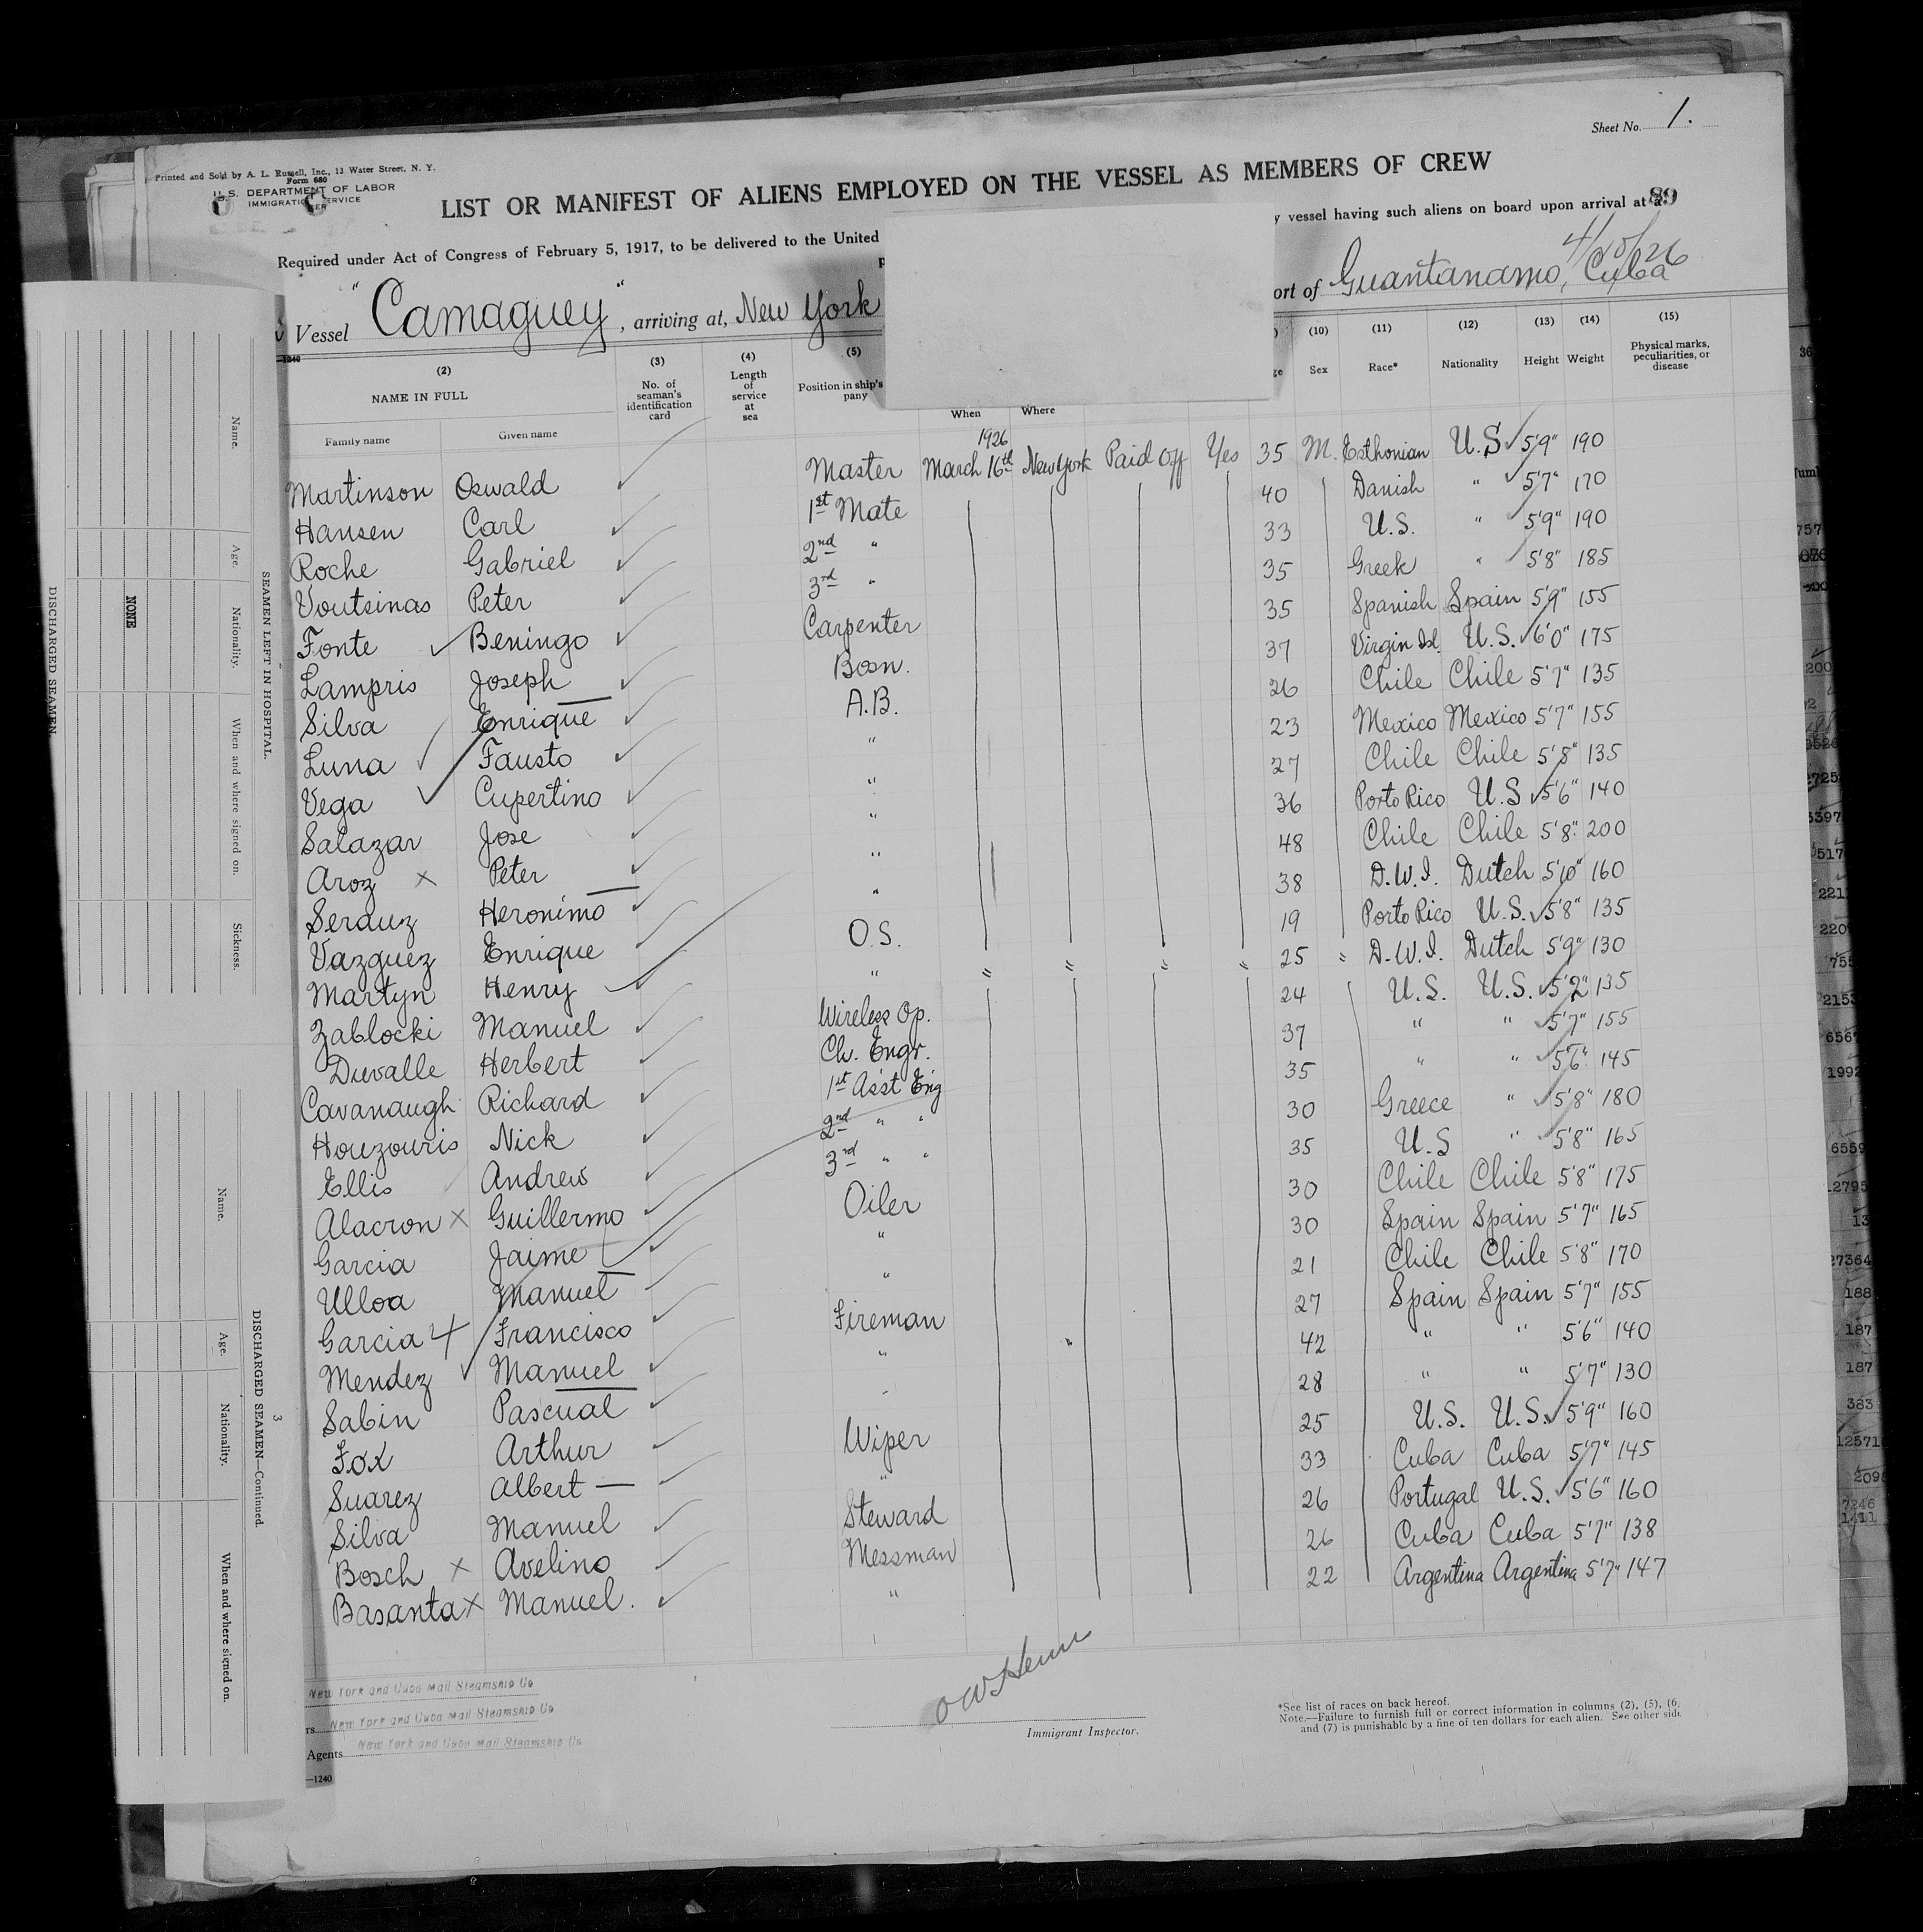 Sheet No. 1.
Printed and Sold by A. L. Russell, Inc., 13 Water Street, N. Y.
Form 680
U.S. DEPARTMENT OF LABOR
IMMIGRATION SERVICE
LIST OR MANIFEST OF ALIENS EMPLOYED ON THE VESSEL AS MEMBERS OF CREW
89
Required under Act of Congress of February 5, 1917, to be delivered to the United
y vessel having such aliens on board upon arrival at a
4/20/26
Vessel "Camaguey", arriving at, New York
ort of Guantanamo, Cuba
—1240
(2) (3) (4) (5) (10) (11) (12) (13) (14) (15)
NAME IN FULL
Family name Given name
No. of seaman's identification card
Length of service at sea
Position in ship's
pany
When Where
Sex Race* Nationality Height Weight
Physical marks, peculiarities, or disease
1926
Martinson Oswald Master March 16th New York Paid Off Yes 35 M. Esthonian U.S 5'9" 190
Hansen Carl 1st Mate 40 Danish " 5'7" 170
Roche Gabriel 2nd " 33 U.S. " 5'9" 190
Voutsinas Peter 3rd " 35 Greek " 5'8" 185
Fonte Beningo Carpenter 35 Spanish Spain 5'9" 155
Lampris Joseph Bosn. 37 Virgin Isl. U.S. 6'0" 175
Silva Enrique A.B. 26 Chile Chile 5'7" 135
Luna Fausto " 23 Mexico Mexico 5'7" 155
Vega Cupertino " 27 Chile Chile 5'5" 135
Salazar Jose " 36 Porto Rico U.S 5'6" 140
Aroz Peter " 48 Chile Chile 5'8" 200
Serauz Heronimo " 38 D.W.I. Dutch 5'10" 160
Vazquez Enrique O.S. 19 Porto Rico U.S. 5'8" 135
Martyn Henry " " " " " 25 " D.W.I. Dutch 5'9" 130
Zablocki Manuel Wireless Op. 24 U.S. U.S. 5'2" 135
Duvalle Herbert Ch. Engr. 37 " " 5'7" 155
Cavanaugh Richard 1st Ass't Eng 35 " " 5'6" 145
Houzouris Nick 2nd " " 30 Greece " 5'8" 180
Ellis Andrew 3rd " " 35 U.S " 5'8" 165
Alacron Guillermo Oiler 30 Chile Chile 5'8" 175
Garcia Jaime " 30 Spain Spain 5'7" 165
Ulloa Manuel " 21 Chile Chile 5'8" 170
Garcia Francisco Fireman 27 Spain Spain 5'7" 155
Mendez Manuel " 42 " " 5'6" 140
Sabin Pascual 28 " " 5'7" 130
Fox Arthur Wiper 25 U.S. U.S. 5'9" 160
Suarez Albert " 33 Cuba Cuba 5'7" 145
Silva Manuel Steward 26 Portugal U.S. 5'6" 160
Bosch Avelino Messman 26 Cuba Cuba 5'7" 138
Basanta Manuel. " 22 Argentina Argentina 5'7" 147
New York and Cuba Mail Steamship Co
rs New York and Cuba Mail Steamship Co
Agents New York and Cuba Mail Steamship Co
—1240
Immigrant Inspector.
*See list of races on back hereof.
Note.—Failure to furnish full or correct information in columns (2), (5), (6,
and (7) is punishable by a fine of ten dollars for each alien. See other side
DISCHARGED SEAMEN.
NONE
SEAMEN LEFT IN HOSPITAL.
Name. Age. Nationality. When and where signed on. Sickness.
DISCHARGED SEAMEN—Continued.
3
Name. Age. Nationality. When and where signed on.